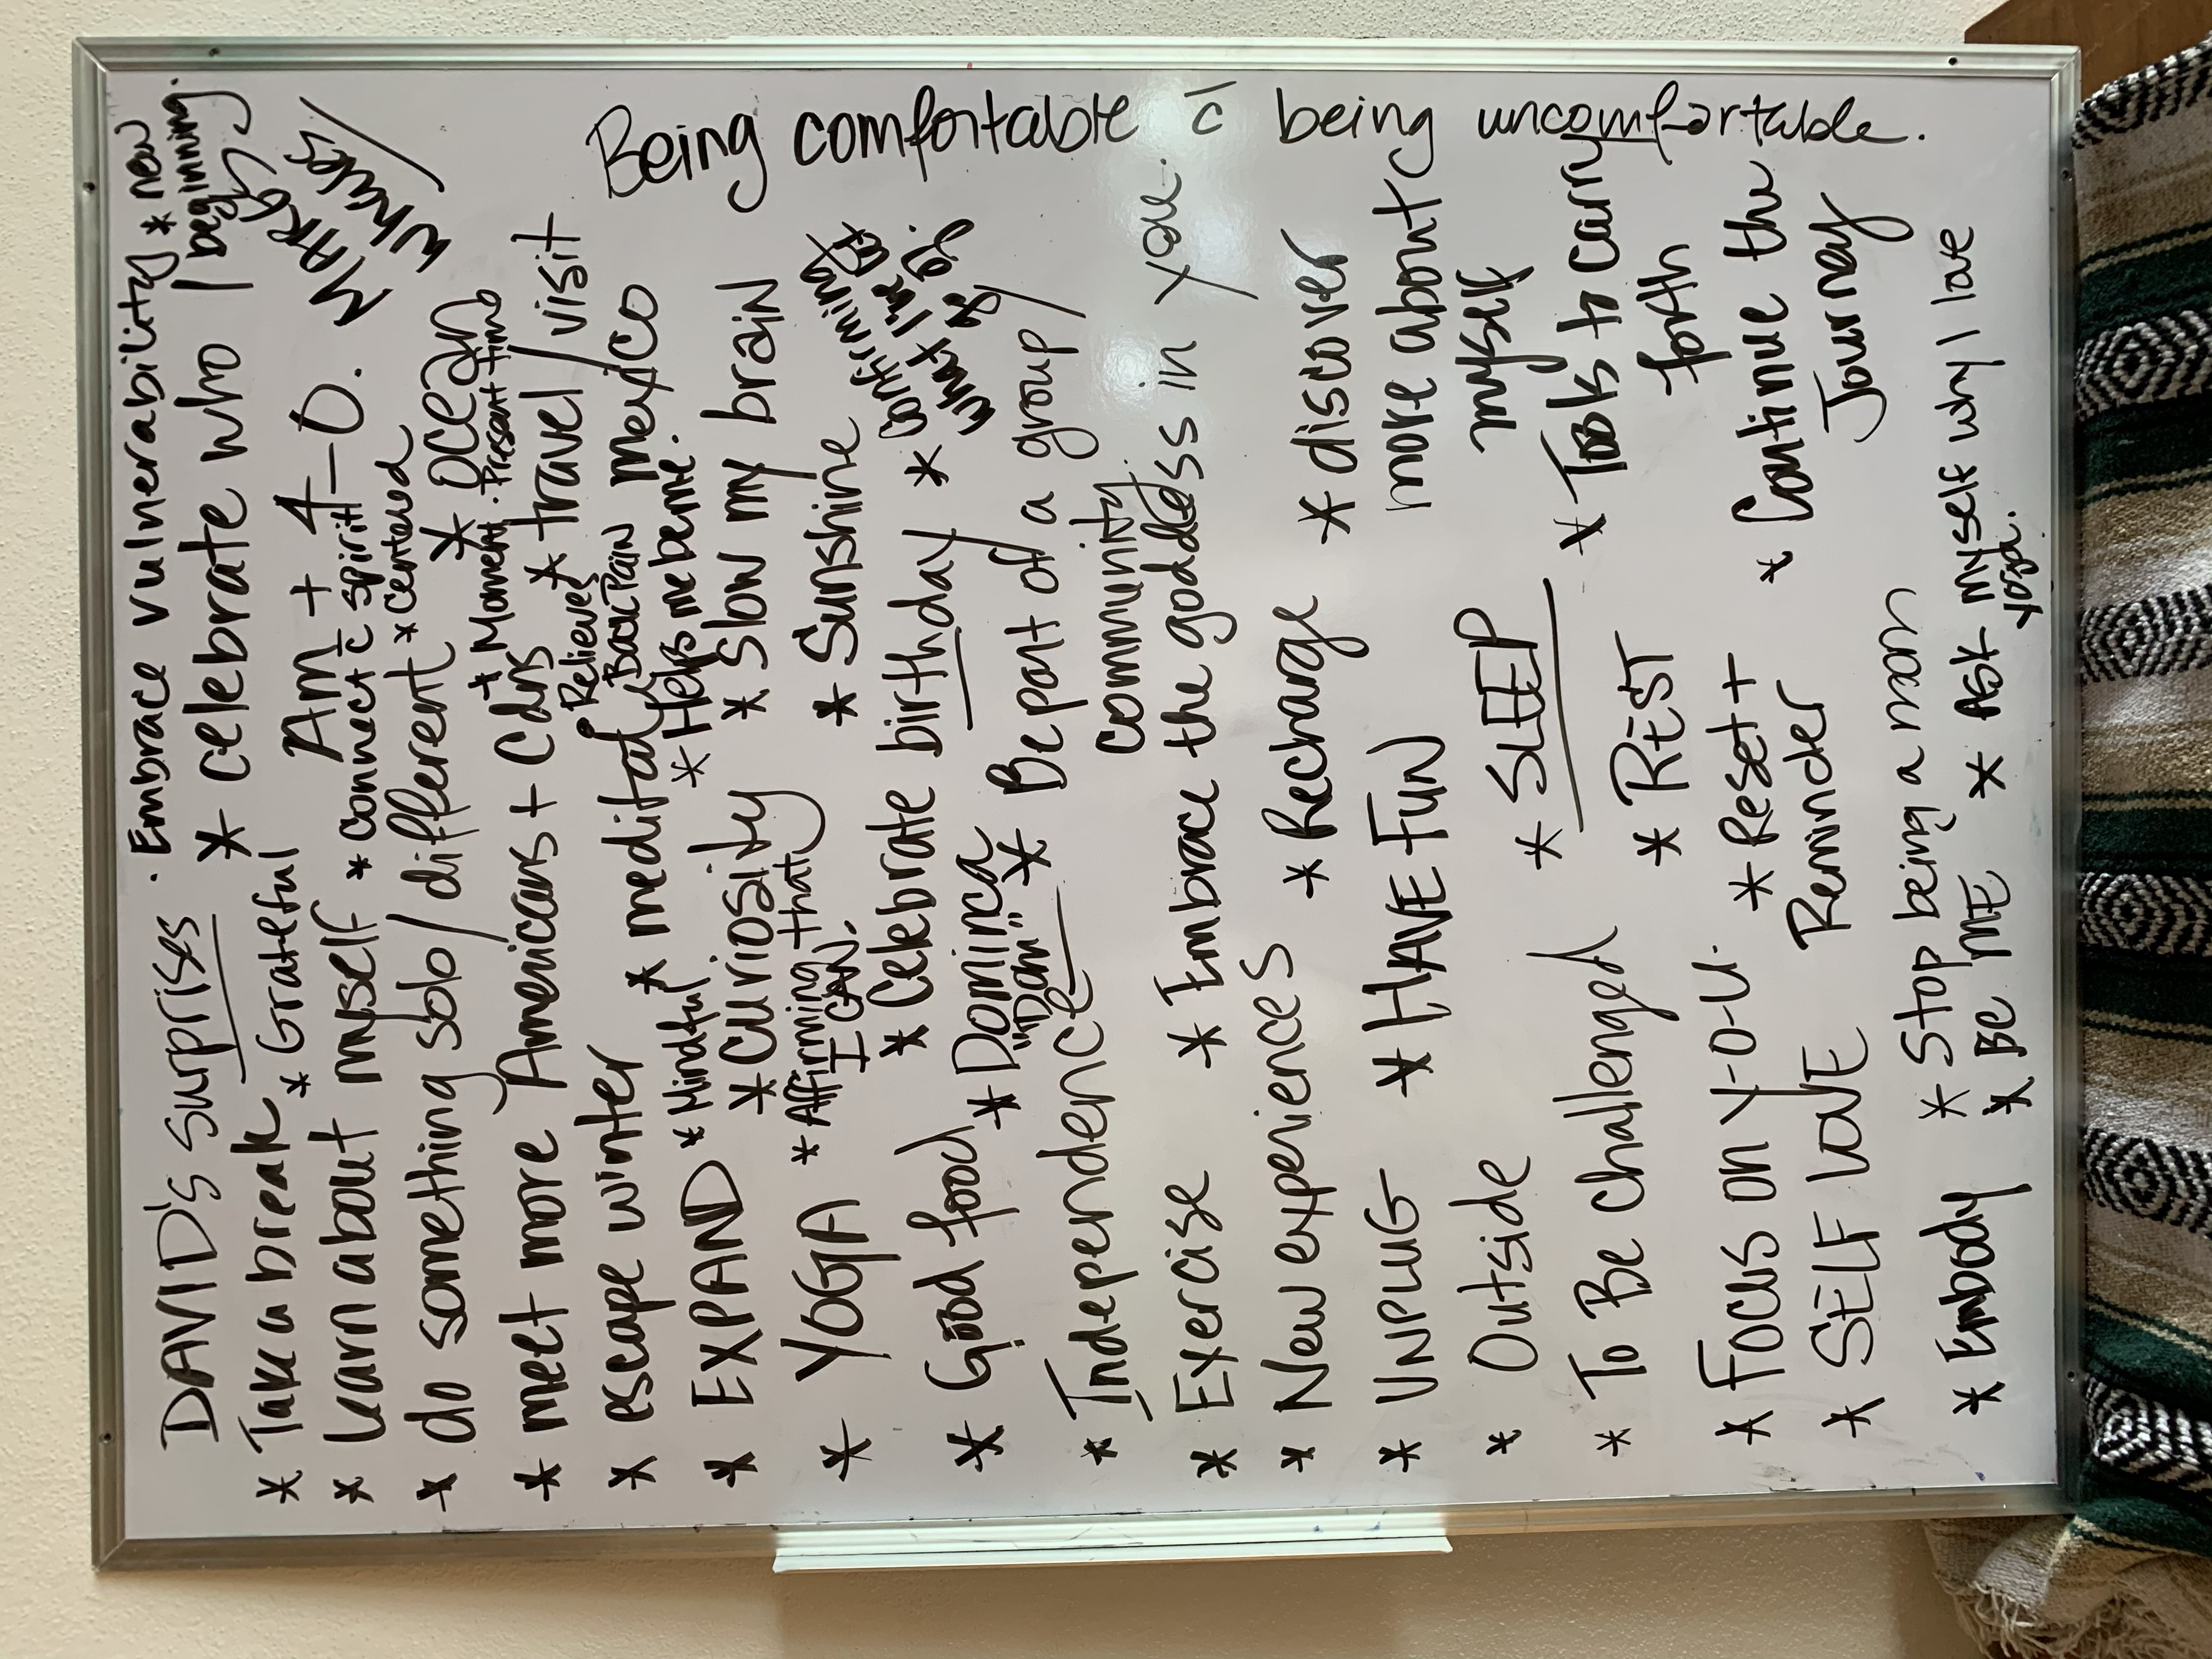 DAVID's surprises
· Embrace vulnerability
* new beginning.
* Take a break
* Grateful
* celebrate who I
Am + 4-0.
* Learn about myself
* connect c̄ spirit
* Centered
MARGS
Whales
* do something solo/different
* ocean
* meet more Americans + Cdns
+ Moment. Present time
* travel/visit
mexico
* escape winter
* meditate
Relieves
Back Pain
* EXPAND
* Mindful
* Helps me be me.
* curiosity
* Slow my brain
* YOGA
* Affirming that
I CAN.
* Sunshine
* Good food
* Celebrate birthday
* Confirming
what I'm
* Dominica
"Dom"
* Be part of a group/
community
* Independence
* Exercise
* Embrace the goddess in you.
* New experiences
* Recharge
* discover
more about
myself
* UNPLUG
* HAVE FUN
* Outside
* SLEEP
* Tools to carry
forth
* To Be Challenged
* REST
* Focus on Y-O-U.
* Reset +
Reminder
* Continue the
Journey
* SELF LOVE
* Stop being a
* Embody
* BE ME
* Ask myself why I love
yoga.
Being comfortable c̄ being uncomfortable.